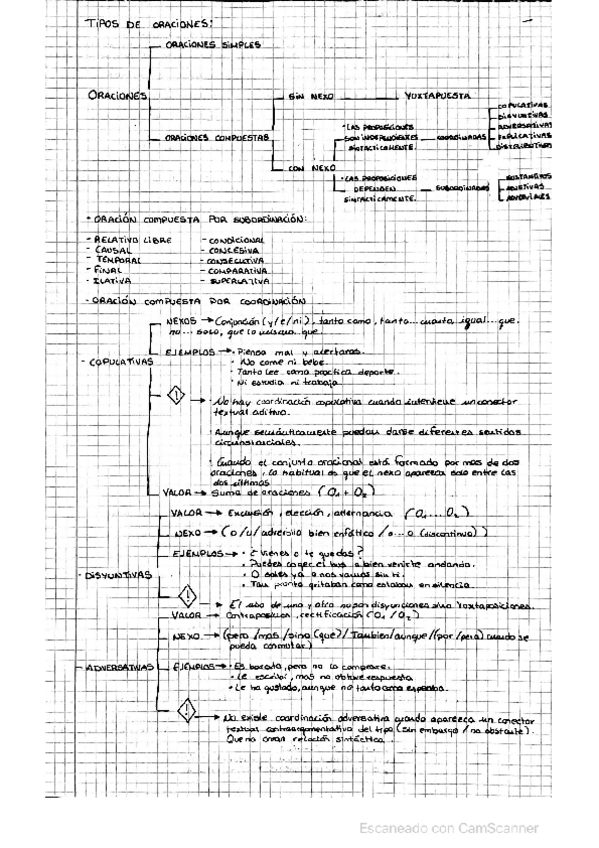 TIPOS DE ORACIONES:
ORACIONES SIMPLES
ORACIONES
SIN NEXO
YUXTAPUESTA
COPULATIVAS
DISYUNTIVAS
ADVERSATIVAS
EXPLICATIVAS
DISTRIBUTIVAS
ORACIONES COMPUESTAS
• LAS PROPOSICIONES
SON INDEPENDIENTES
SINTÁCTICAMENTE.
COORDINADAS
CON NEXO
• LAS PROPOSICIONES
DEPENDEN
SINTÁCTICAMENTE.
SUBORDINADAS
SUSTANTIVAS
ADJETIVAS
ADVERBIALES
- ORACIÓN COMPUESTA POR SUBORDINACIÓN:
- RELATIVO LIBRE - CONDICIONAL
- CAUSAL - CONCESIVA
- TEMPORAL - CONSECUTIVA
- FINAL - COMPARATIVA
- ILATIVA - SUPERLATIVA
- ORACIÓN COMPUESTA POR COORDINACIÓN
- COPULATIVAS
NEXOS → Conjunción (y/e/ni), tanto como, tanto... cuanto, igual... que,
no... solo, que lo mismo que
EJEMPLOS → • Piensa mal y acertaras.
• No come ni bebe.
• Tanto lee como practica deporte.
• Ni estudia ni trabaja
! → • No hay coordinación copulativa cuando interviene un conector
textual aditivo.
• Aunque semánticamente puedan darse diferentes sentidos
circunstanciales.
• Cuando el conjunto oracional está formado por mas de dos
oraciones, lo habitual es que el nexo aparezca solo entre las
dos últimas
VALOR → Suma de oraciones (O1 + O2)
- DISYUNTIVAS
VALOR → Exclusión, elección, alternancia (O1 ... O2)
NEXO → (o/u/ adverbio bien enfático / o... o (discontinuo))
EJEMPLOS → • ¿Vienes o te quedas?
• Puedes coger el bus o bien venirte andando.
• O sales ya o nos vamos sin ti.
• Tan pronto gritaban como estaban en silencio.
! → El uso de uno y otro no son disyunciones sino yuxtaposiciones.
- ADVERSATIVAS
VALOR → Contraposición, rectificación (O1 / O2)
NEXO → (pero / mas / sino (que) / También / aunque / (por / pero) cuando se
pueda conmutar.)
EJEMPLOS → • Es barata, pero no la comprare.
• Le escribí, mas no obtuve respuesta
• Le ha gustado, aunque no tanto como esperaba.
! → No existe coordinación adversativa cuando aparezca un conector
textual contraargumentativo del tipo (sin embargo / no obstante).
Que no crean relación sintáctica...
Escaneado con CamScanner